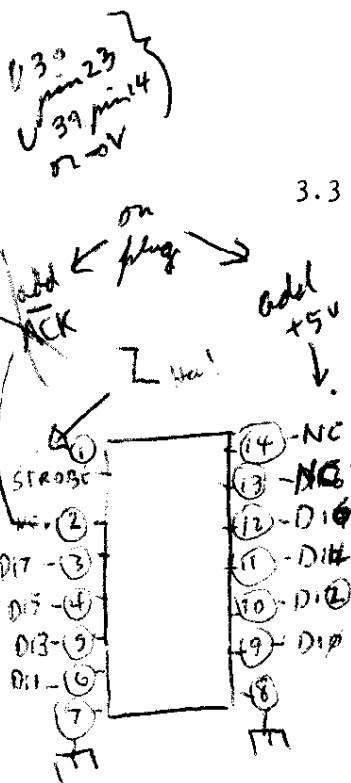 U39
pin 23
U39 pin 14
on 0V
3.3
on
plug
add
ACK
add
+5v
1
STROBE
2
DI7 - 3
DI5 - 4
DI3 - 5
DI1 - 6
7
14 - NC
13 - NC
12 - DI6
11 - DI4
10 - DI2
9 - DI0
8